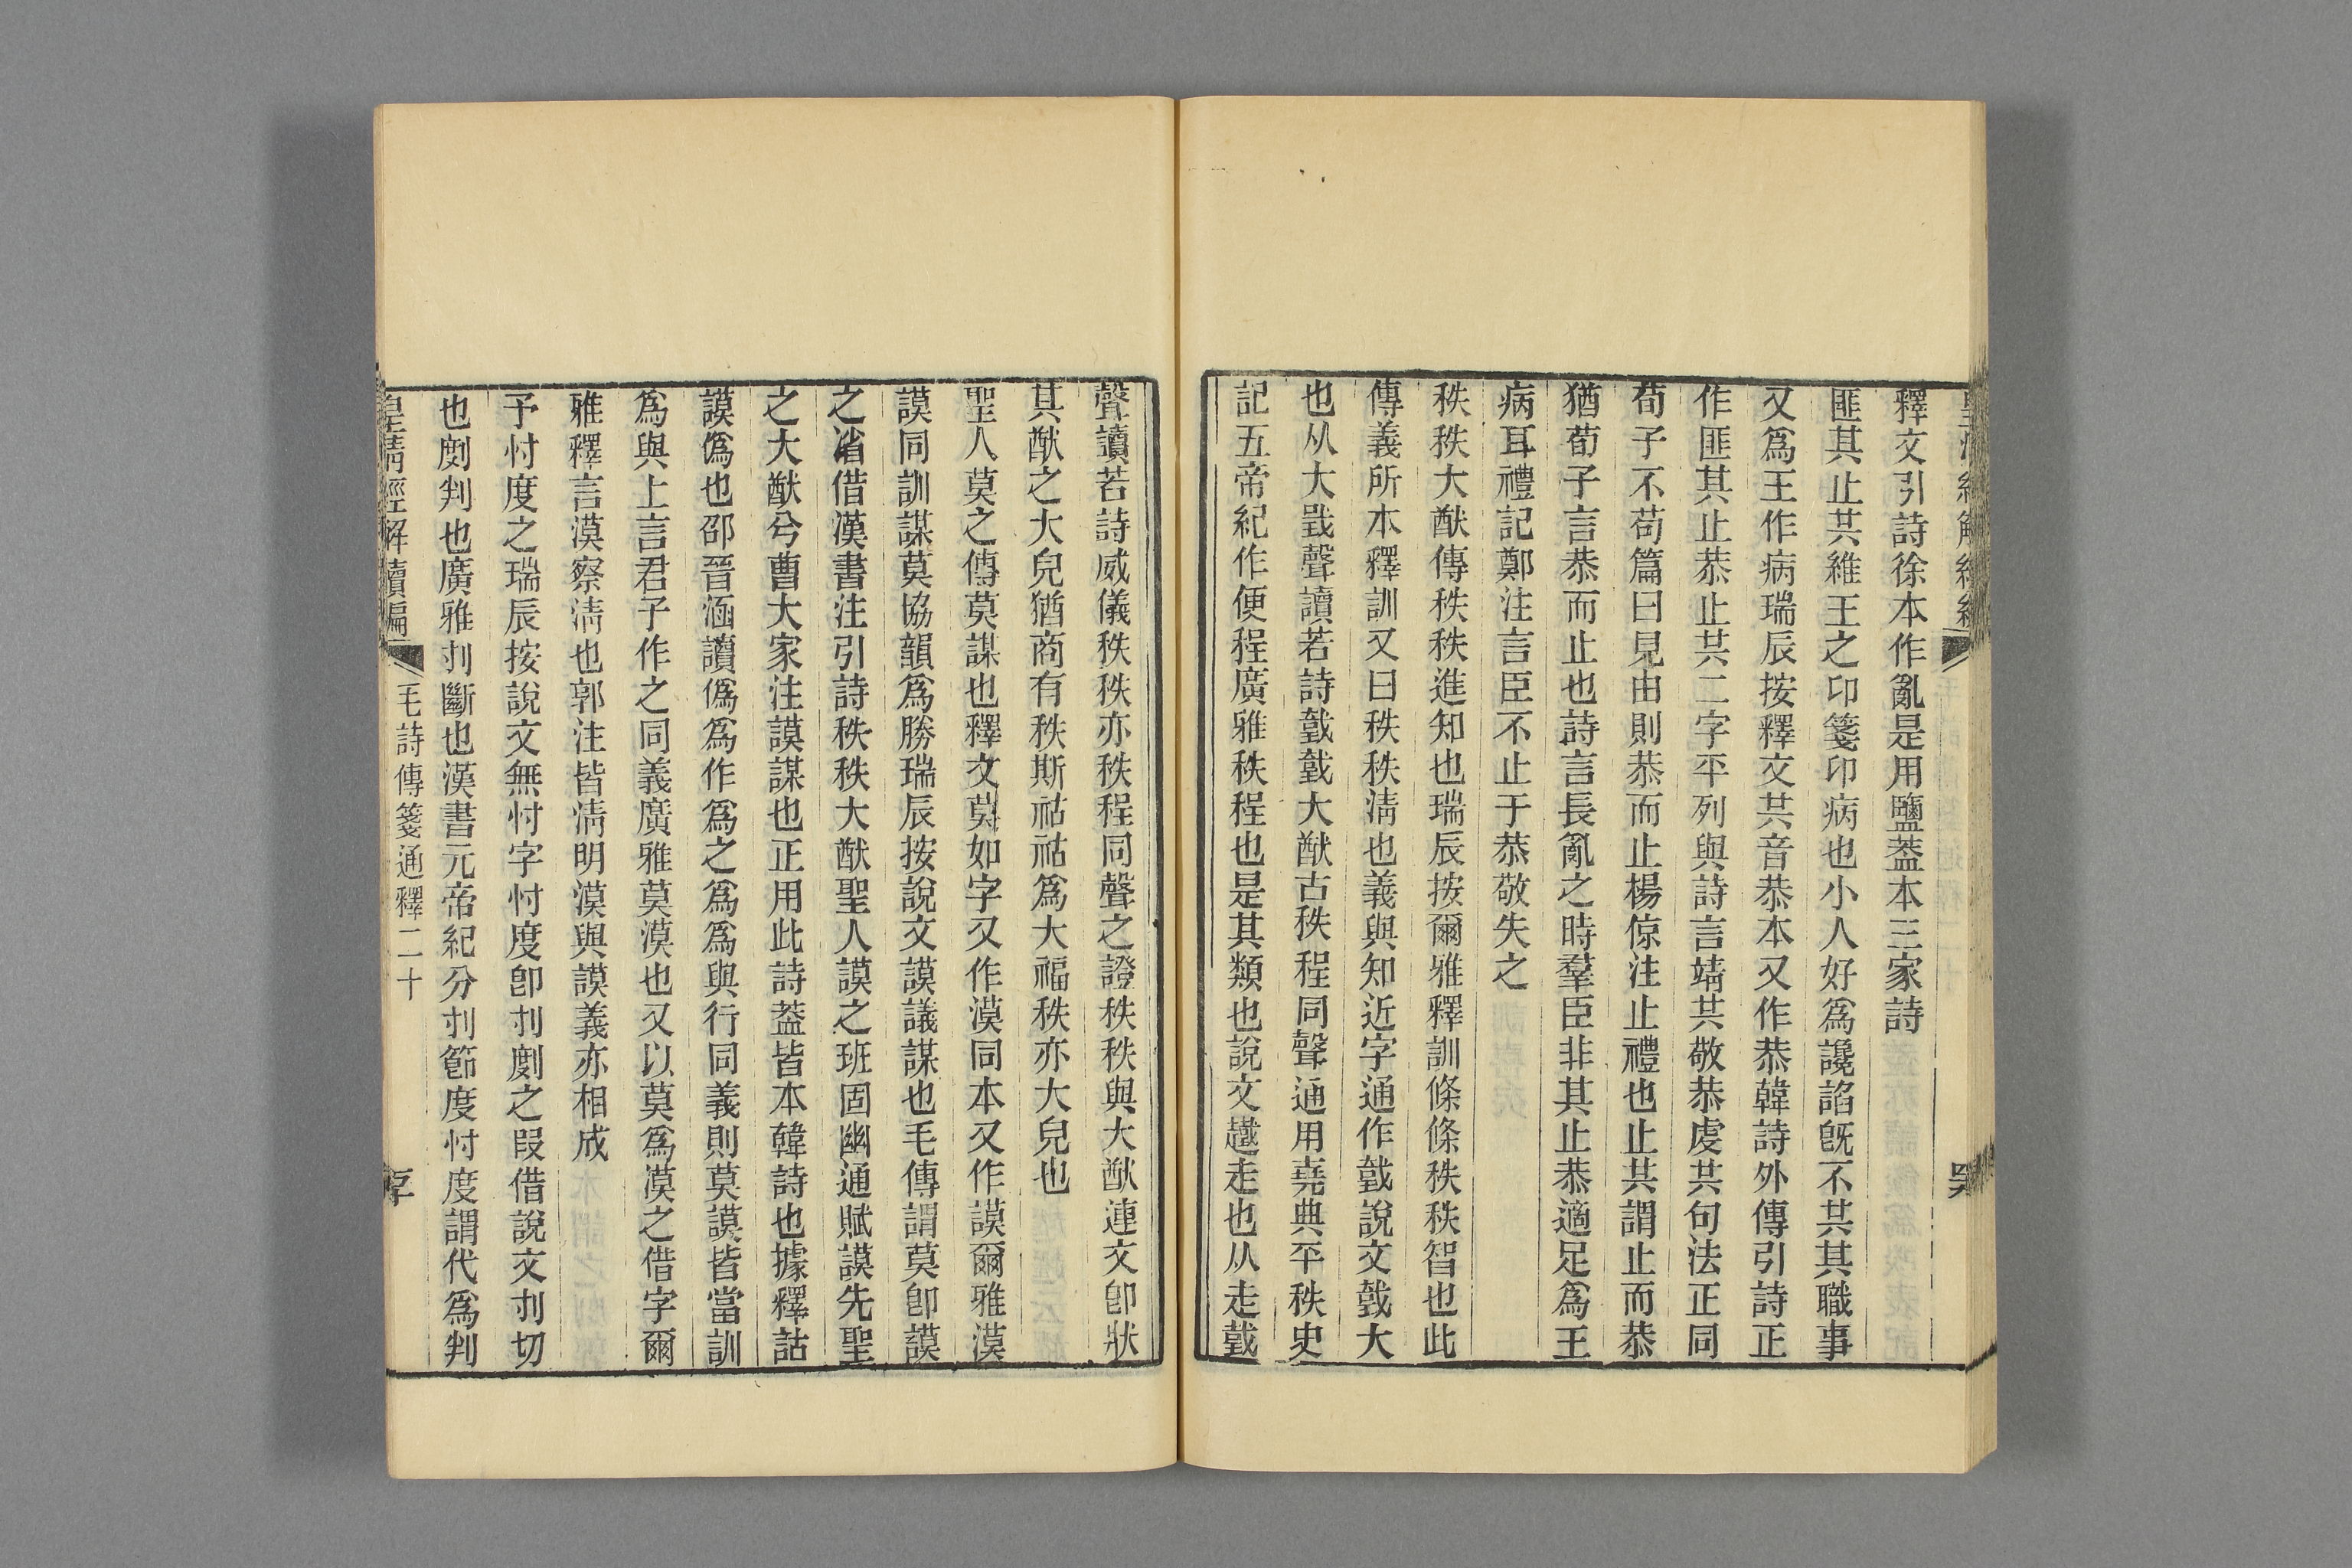 釋文引詩徐本作亂是用鹽葢本三家詩
匪其止共維王之卭箋卭病也小人好爲讒諂旣不共其職事
又爲王作病瑞辰按釋文共音恭本又作恭韓詩外傳引詩正
作匪其止恭止共二字平列與詩言靖共敬恭虔共句法正同
荀子不苟篇曰見由則恭而止楊倞注止禮也止共謂止而恭
猶荀子言恭而止也詩言長亂之時羣臣非其止恭適足爲王
病耳禮記鄭注言臣不止于恭敬失之
秩秩大猷傳秩秩進知也瑞辰按爾雅釋訓條條秩秩智也此
傳義所本釋訓又曰秩秩淸也義與知近字通作䟫說文䟫大
也从大𢧜聲讀若詩䟫䟫大猷古秩程同聲通用堯典平秩史
記五帝紀作便程廣雅秩程也是其類也說文趩走也从走䟫
聲讀若詩威儀秩秩亦秩程同聲之證秩秩與大猷連文卽狀
其猷之大皃猶商有秩斯祜祜爲大福秩亦大皃也
聖人莫之傳莫謀也釋文莫如字又作漠同本又作謨爾雅漠
謨同訓謀莫協韻爲勝瑞辰按說文謨議謀也毛傳謂莫卽謨
之渻借漢書注引詩秩秩大猷聖人謨之班固幽通賦謨先聖
之大猷兮曹大家注謨謀也正用此詩葢皆本韓詩也據釋詁
謨僞也邵晉涵讀僞爲作爲之爲爲與行同義則莫謨皆當訓
爲與上言君子作之同義廣雅莫漠也又以莫爲漠之借字爾
雅釋言漠察淸也郭注皆淸明漠與謨義亦相成
予忖度之瑞辰按說文無忖字忖度卽刌劇之叚借說文刌切
也劇判也廣雅刌斷也漢書元帝紀分刌節度忖度謂代爲判
皇淸經解續編
毛詩傳箋通釋二十